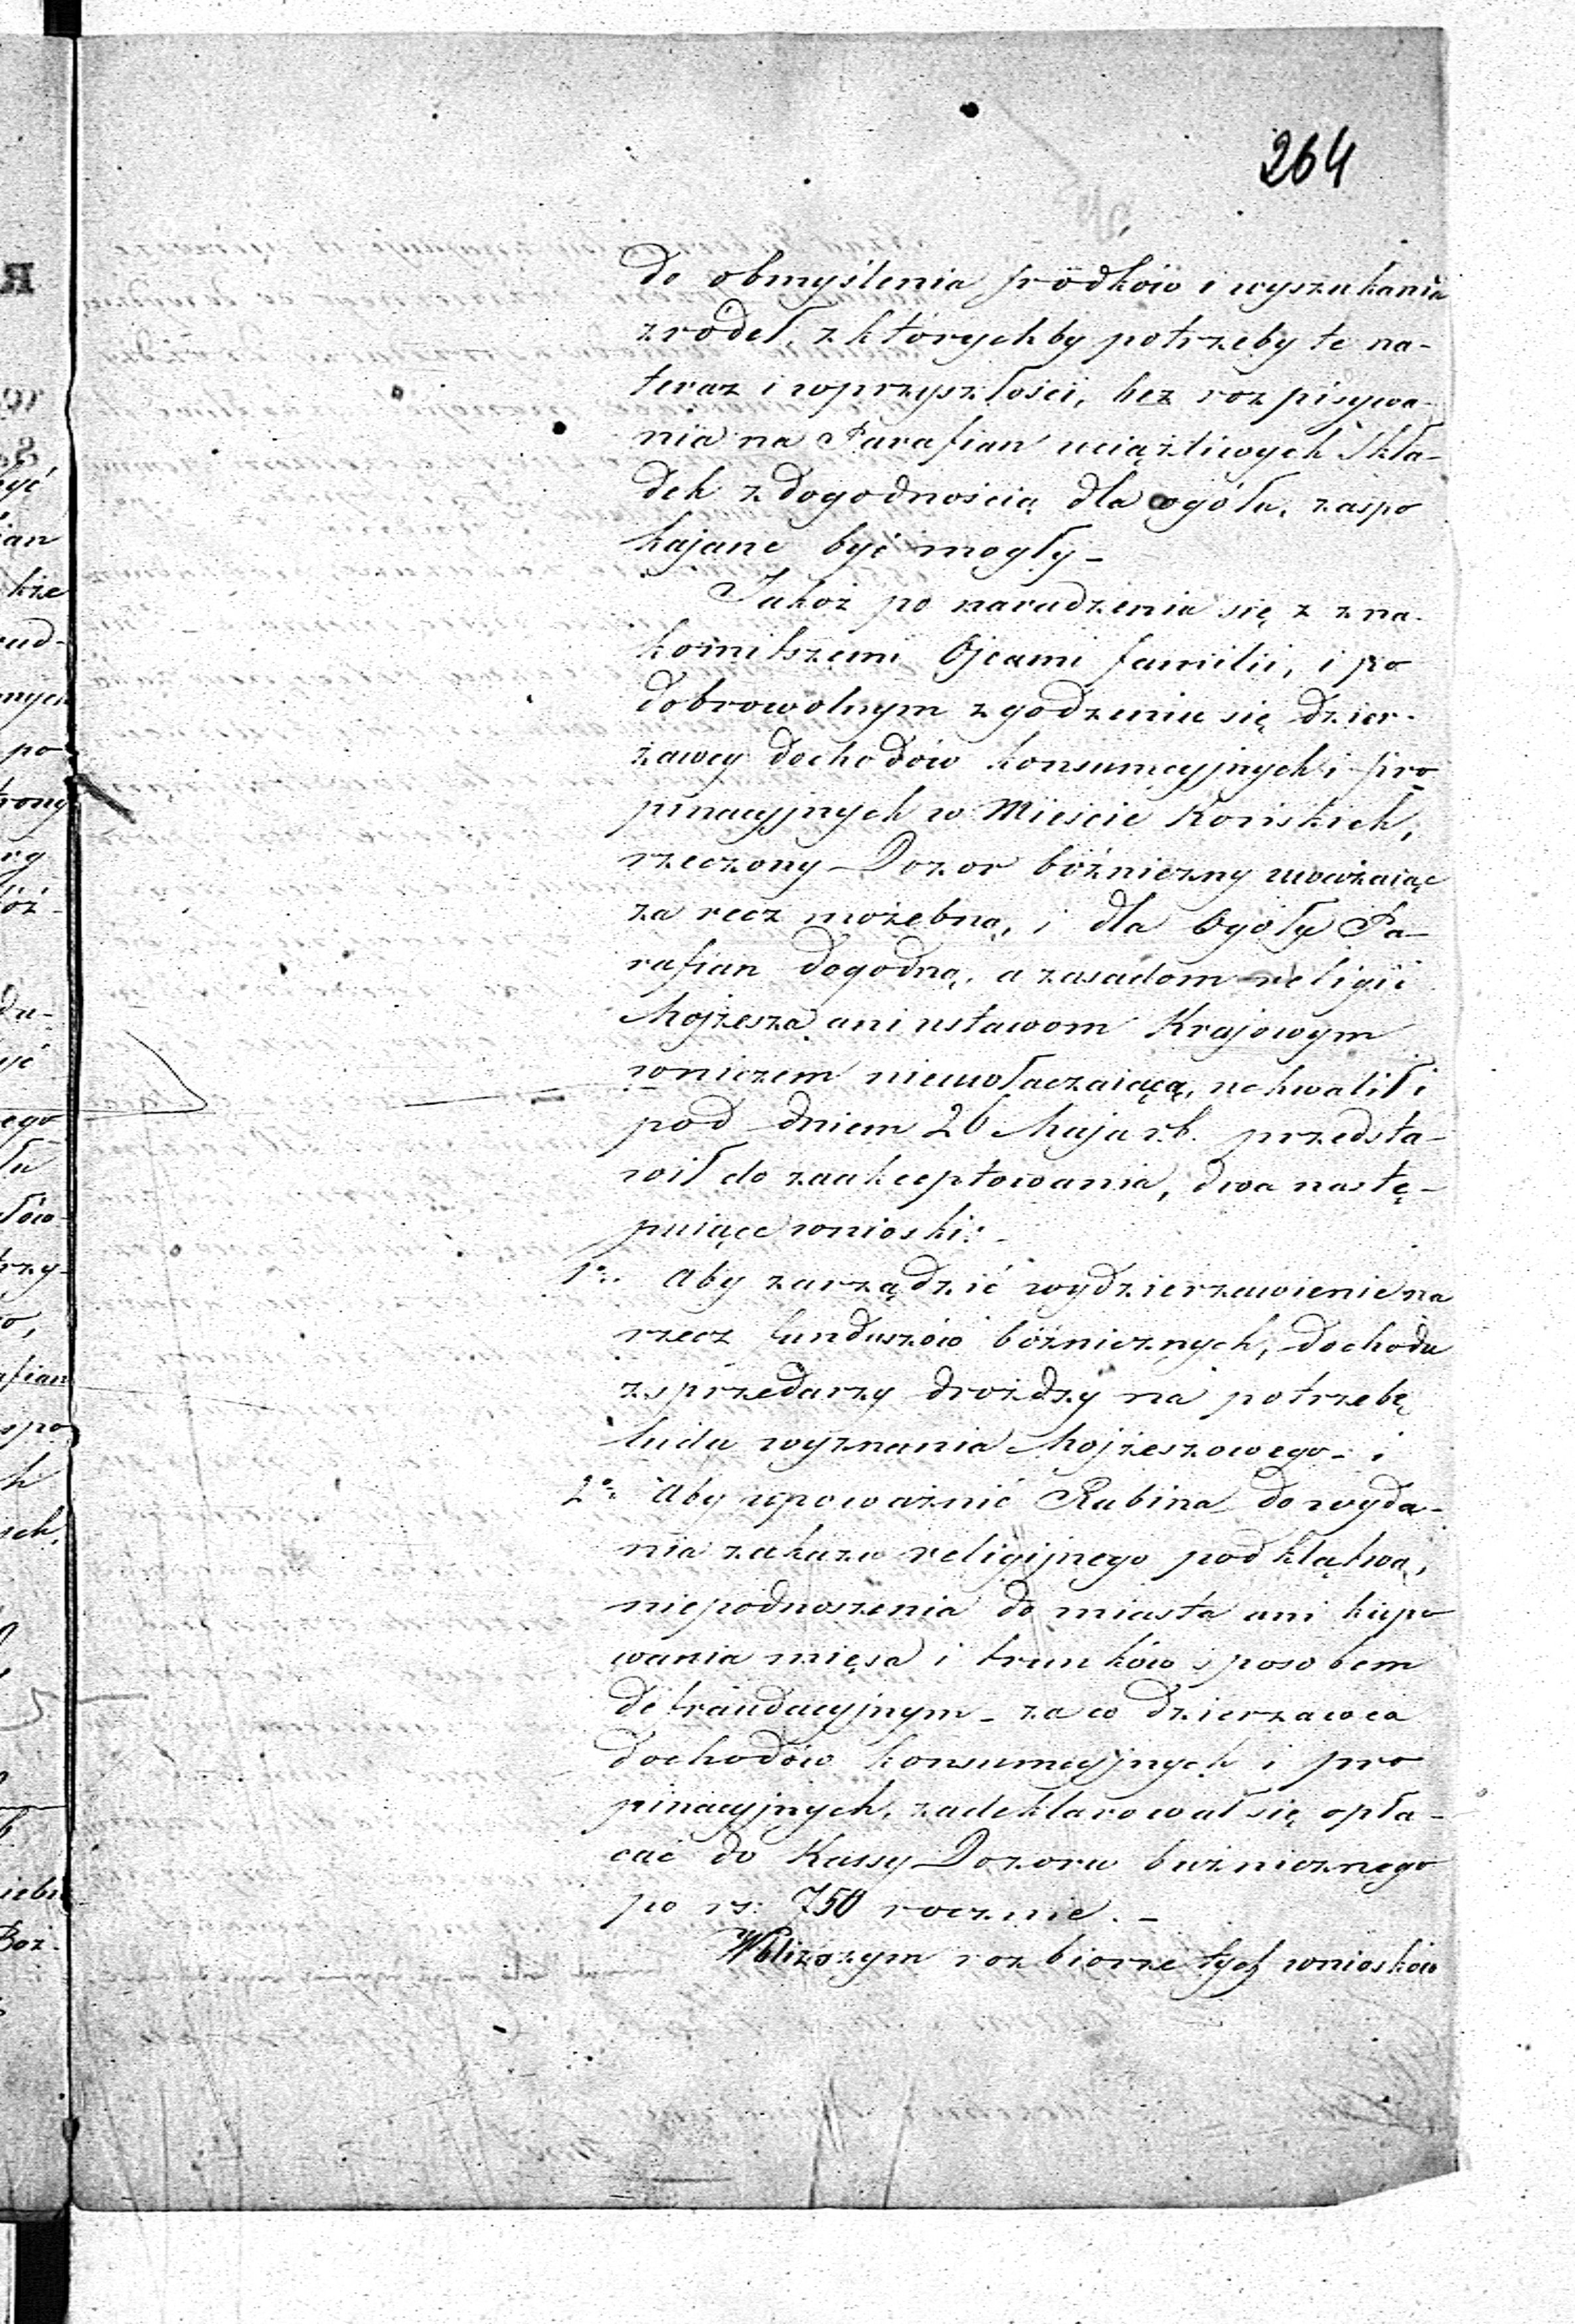 264
do obmyślenia środków i wyszukania
źródeł, z którychby potrzeby te na-
teraz i wprzyszłości, bez rozpisywa-
nia na Parafian uciążliwych Skła-
dek z dogodnością dla ogółu, zaspo
kajane być mogły –
Jakoż po naradzenia się z zna-
komitszemi Ojcami familii, i po
dobrowolnym zgodzeniu się dzier-
żawcy dochodów konsumcyjnych i pro
pinacyjnych w Mieście Końskich,
rzeczony Dozor bóżniczny uważaiąc
za recz możebną, i dla Ogółu Pa-
rafian dogodną, a zasadom religii
Mojżesza ani ustawom Krajowym
wniczem nieuwłaczaiącą, uchwalił i
pod dniem 26 Maja r.b. przedsta-
wił do zaakceptowania, dwa nastę-
puiące wnioski: –
1º. Aby zarządzić wydzierzawienie na
rzecz funduszów bóżnicznych, dochodu
z sprzedarzy drożdzy na potrzebę
ludu wyznania Mojżeszowego – i
2º. Aby upoważnić Rabina do wyda-
nia zakazu religijnego pod klątwą,
niepodnoszenia do miasta ani kupo
wania mięsa i trunków sposobem
defraudacyjnym – za co dzierzawca
dochodów konsumcyjnych i pro
pinacyjnych, zadeklarował się opła-
cać do Kassy Dozoru bużnicznego
po rs: 750 rocznie. –
Wbliższym rozbiorze tych wniosków